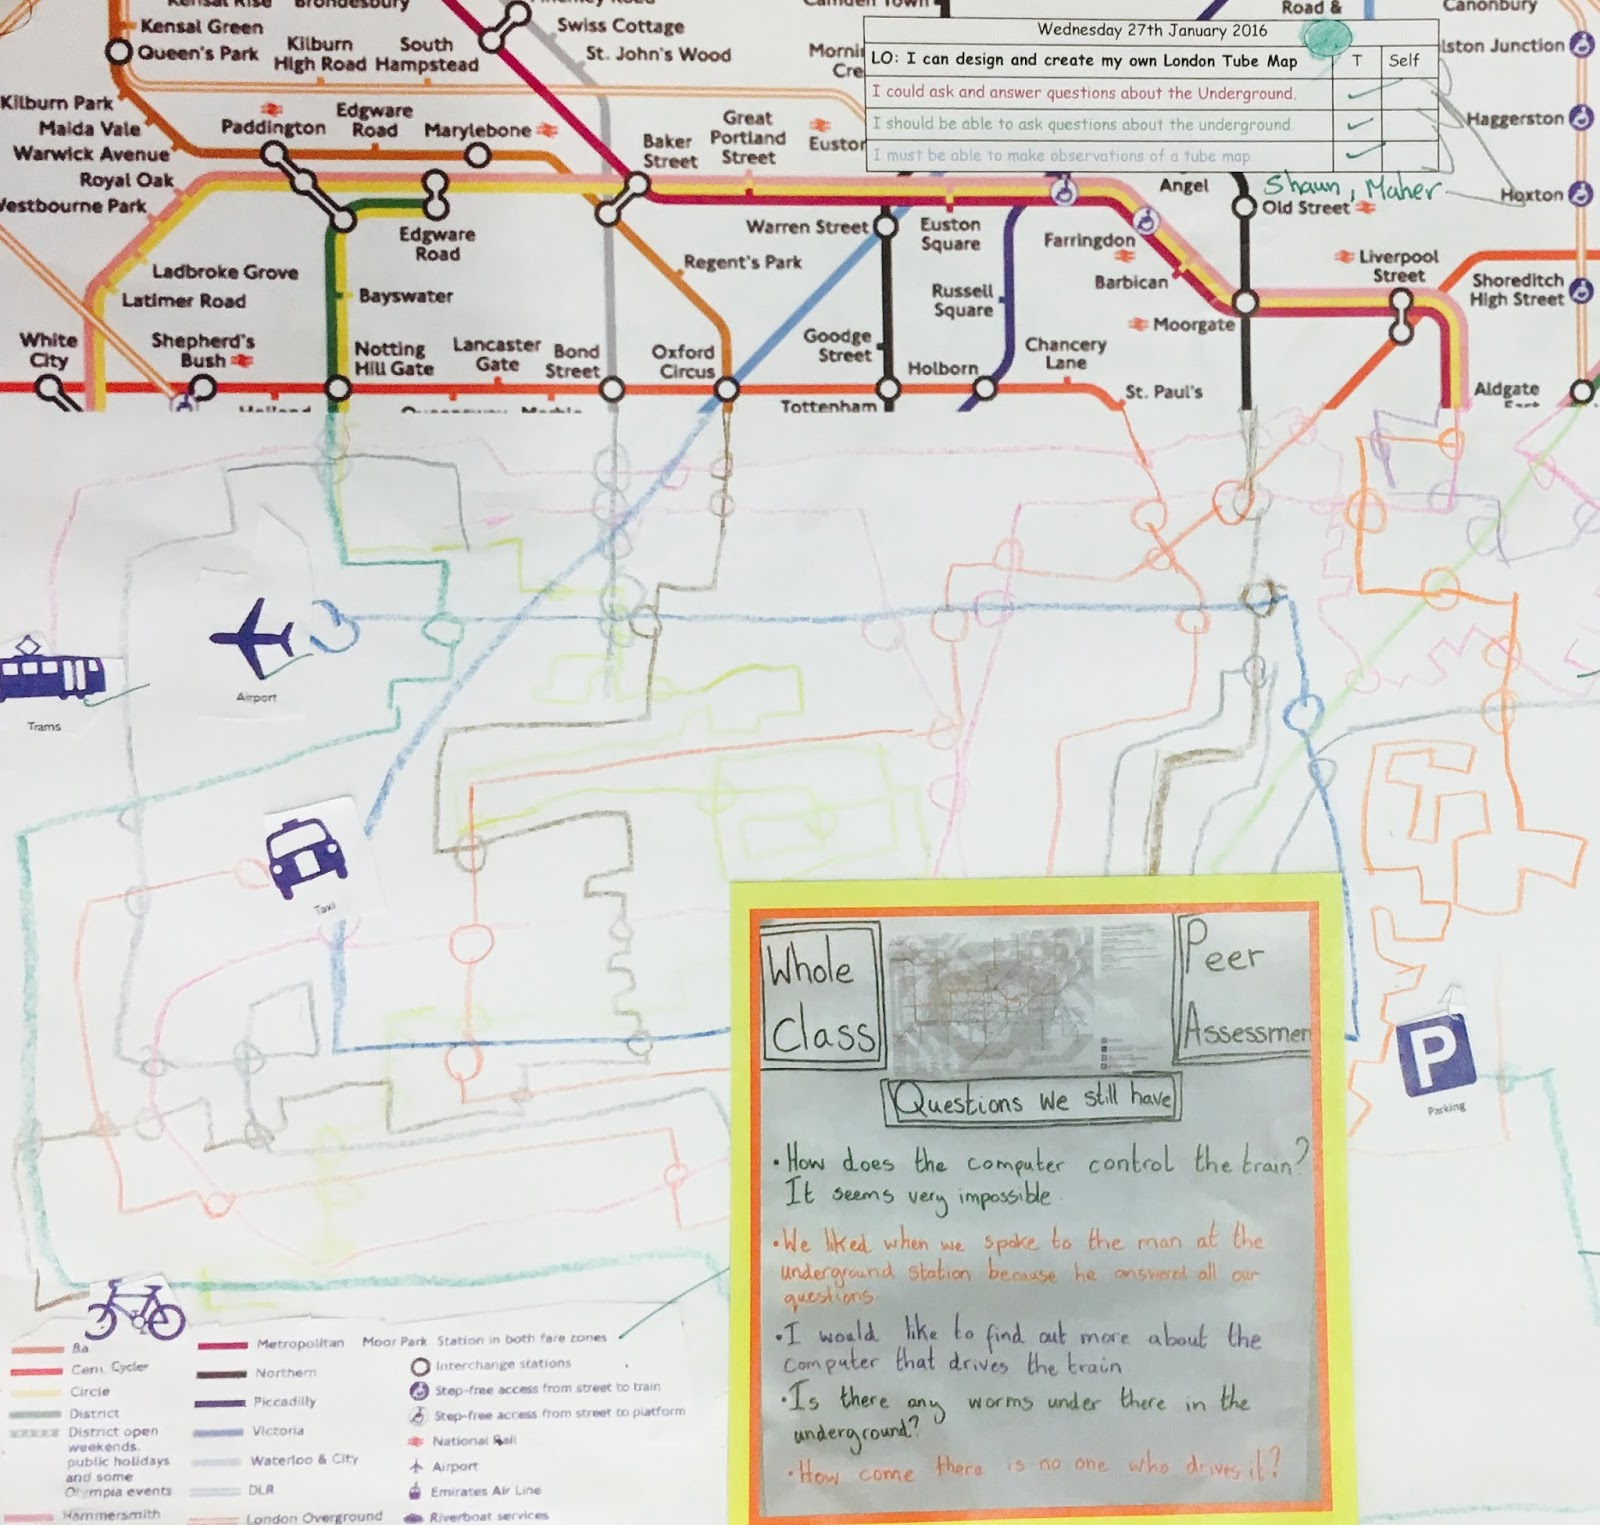 Kensal Rise
Brondesbury
Swiss Cottage
Road &
Canonbury
Kensal Green
Queen's Park
Kilburn
High Road
South
Hampstead
St. John's Wood
Wednesday 27th January 2016
LO: I can design and create my own London Tube Map
T
Self
I could ask and answer questions about the Underground.
I should be able to ask questions about the underground.
I must be able to make observations of a tube map.
Shaun, Maher
lston Junction
Haggerston
Hoxton
Kilburn Park
Maida Vale
Warwick Avenue
Royal Oak
Westbourne Park
Paddington
Edgware
Road
Marylebone
Baker
Street
Great
Portland
Street
Euston
Angel
Old Street
Edgware
Road
Warren Street
Euston
Square
Farringdon
Barbican
Liverpool
Street
Shoreditch
High Street
Ladbroke Grove
Latimer Road
Bayswater
Regent's Park
Russell
Square
Moorgate
White
City
Shepherd's
Bush
Notting
Hill Gate
Lancaster
Gate
Bond
Street
Oxford
Circus
Goodge
Street
Holborn
Chancery
Lane
St. Paul's
Aldgate
East
Tottenham
Trams
Airport
Taxi
P
Parking
Whole
Class
Peer
Assessmen
Questions we still have
• How does the computer control the train?
It seems very impossible.
• We liked when we spoke to the man at the
underground station because he answered all our
questions.
• I would like to find out more about the
computer that drives the train.
• Is there any worms under there in the
underground?
• How come there is no one who drives it?
Ba
Cen
Cycles
Circle
District
District open
weekends,
public holidays
and some
Olympia events
Hammersmith
Metropolitan
Northern
Piccadilly
Victoria
Waterloo & City
DLR
London Overground
Moor Park Station in both fare zones
Interchange stations
Step-free access from street to train
Step-free access from street to platform
National Rail
Airport
Emirates Air Line
Riverboat services